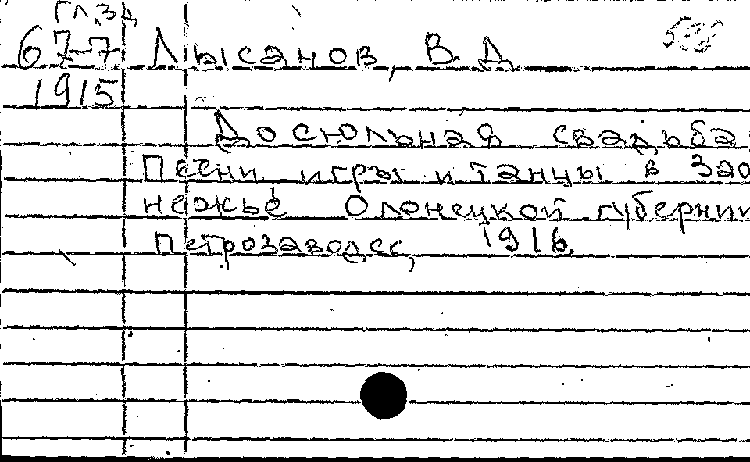 гл.зд
67-7 Лысанов, В. Д.
1915
Досюльная свадьба
Песни игры и танцы в Зао
нежье Олонецкой губернии
Петрозаводск, 1916